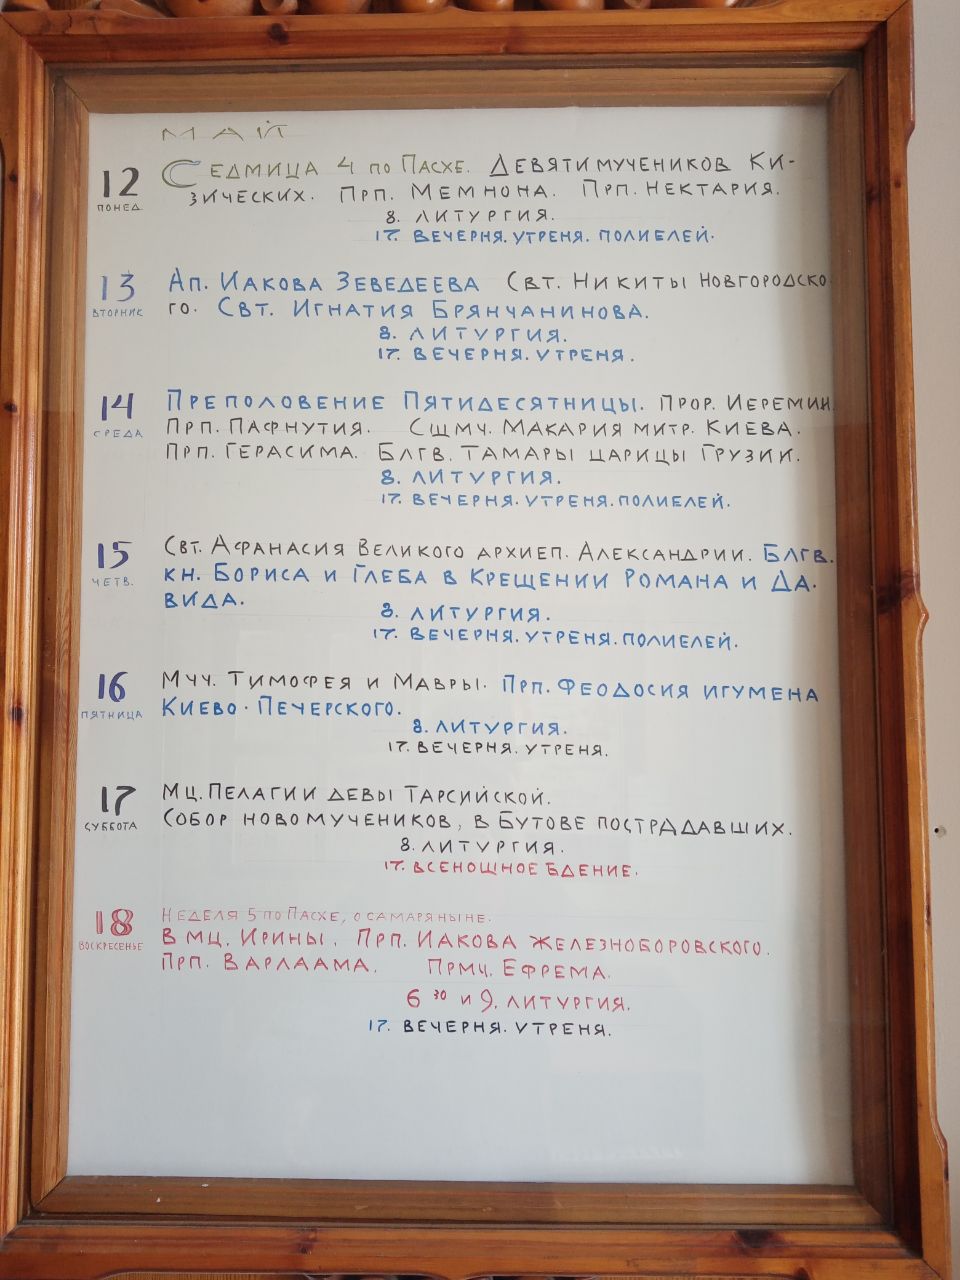 МАЙ
12 СЕДМИЦА 4 ПО ПАСХЕ. ДЕВЯТИ МУЧЕНИКОВ КИ-
ПОНЕД. ЗИЧЕСКИХ. ПРП. МЕМНОНА. ПРП. НЕКТАРИЯ.
8. ЛИТУРГИЯ.
17. ВЕЧЕРНЯ. УТРЕНЯ. ПОЛИЕЛЕЙ.
13 АП. ИАКОВА ЗЕВЕДЕЕВА СВТ. НИКИТЫ НОВГОРОДСКО-
ВТОРНИК ГО. СВТ. ИГНАТИЯ БРЯНЧАНИНОВА.
8. ЛИТУРГИЯ.
17. ВЕЧЕРНЯ. УТРЕНЯ.
14 ПРЕПОЛОВЕНИЕ ПЯТИДЕСЯТНИЦЫ. ПРОР. ИЕРЕМИИ.
СРЕДА ПРП. ПАФНУТИЯ. СЩМЧ. МАКАРИЯ МИТР. КИЕВА.
ПРП. ГЕРАСИМА. БЛГВ. ТАМАРЫ ЦАРИЦЫ ГРУЗИИ.
8. ЛИТУРГИЯ.
17. ВЕЧЕРНЯ. УТРЕНЯ. ПОЛИЕЛЕЙ.
15 СВТ. АФАНАСИЯ ВЕЛИКОГО АРХИЕП. АЛЕКСАНДРИИ. БЛГВ.
ЧЕТВ. КН. БОРИСА И ГЛЕБА В КРЕЩЕНИИ РОМАНА И ДА-
ВИДА.
8. ЛИТУРГИЯ.
17. ВЕЧЕРНЯ. УТРЕНЯ. ПОЛИЕЛЕЙ.
16 МЧЧ. ТИМОФЕЯ И МАВРЫ. ПРП. ФЕОДОСИЯ ИГУМЕНА
ПЯТНИЦА КИЕВО-ПЕЧЕРСКОГО.
8. ЛИТУРГИЯ.
17. ВЕЧЕРНЯ. УТРЕНЯ.
17 МЦ. ПЕЛАГИИ ДЕВЫ ТАРСИЙСКОЙ.
СУББОТА СОБОР НОВОМУЧЕНИКОВ, В БУТОВЕ ПОСТРАДАВШИХ.
8. ЛИТУРГИЯ.
17. ВСЕНОЩНОЕ БДЕНИЕ.
18 НЕДЕЛЯ 5 ПО ПАСХЕ, О САМАРЯНЫНЕ.
ВОСКРЕСЕНЬЕ ВМЦ. ИРИНЫ. ПРП. ИАКОВА ЖЕЛЕЗНОБОРОВСКОГО.
ПРП. ВАРЛААМА. ПРМЧ. ЕФРЕМА.
6 30 И 9. ЛИТУРГИЯ.
17. ВЕЧЕРНЯ. УТРЕНЯ.